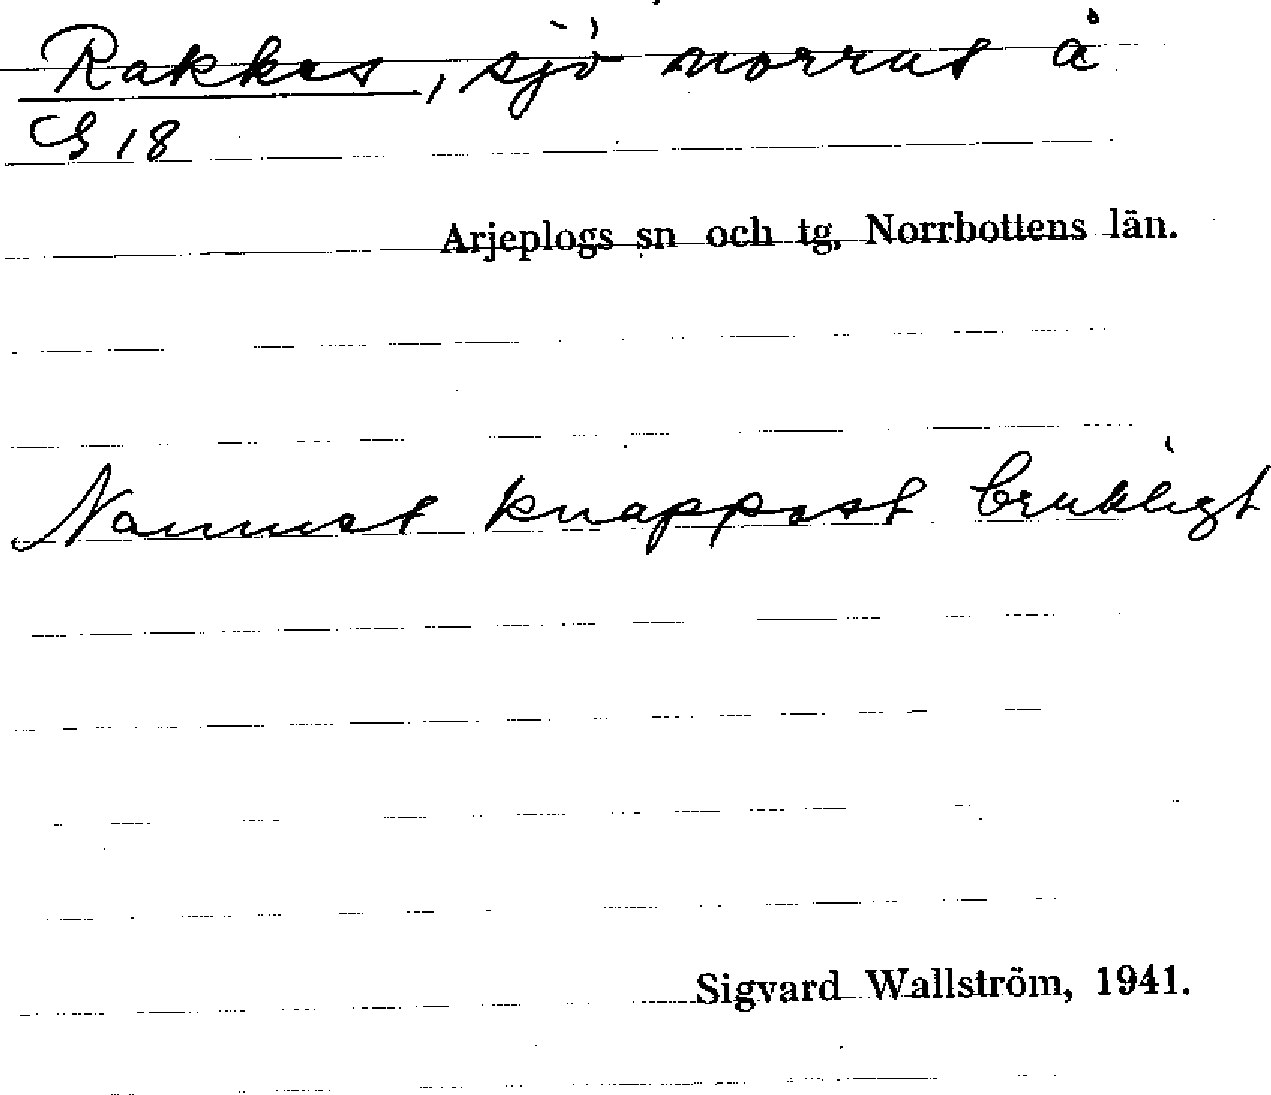 Rakkes, sjö norrut å
G 18
Arjeplogs sn och tg, Norrbottens län.
Namnet knappast brukligt
Sigvard Wallström, 1941.